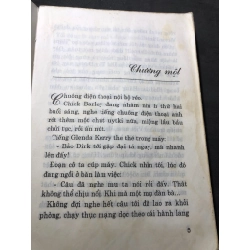 Chương một
Chuông điện thoại nội bộ réo.
Chick Barley đang nhâm nhi ly thứ hai
buổi sáng, nghe tiếng chuông điện thoại anh
rả thêm một chút uýtki nữa, miệng lẩm
chút tục, rồi ấn nút.
Tiếng Glenda Kerry the thé trong máy:
- Bảo Dirk tới gặp đại tá ngay, mà nhanh
lên đấy!
Loạn cả tá cúp máy. Chick nhìn tôi, lúc đó
đang ngồi ở bàn làm việc:
- Cậu đã nghe mụ ta nói rồi đấy. Thật
không thể chịu nổi. Khi mà một mụ đàn bà...
Không đợi nghe hết câu tôi đã lao ra khỏi
phòng, chạy thục mạng dọc theo cái hành lang
5